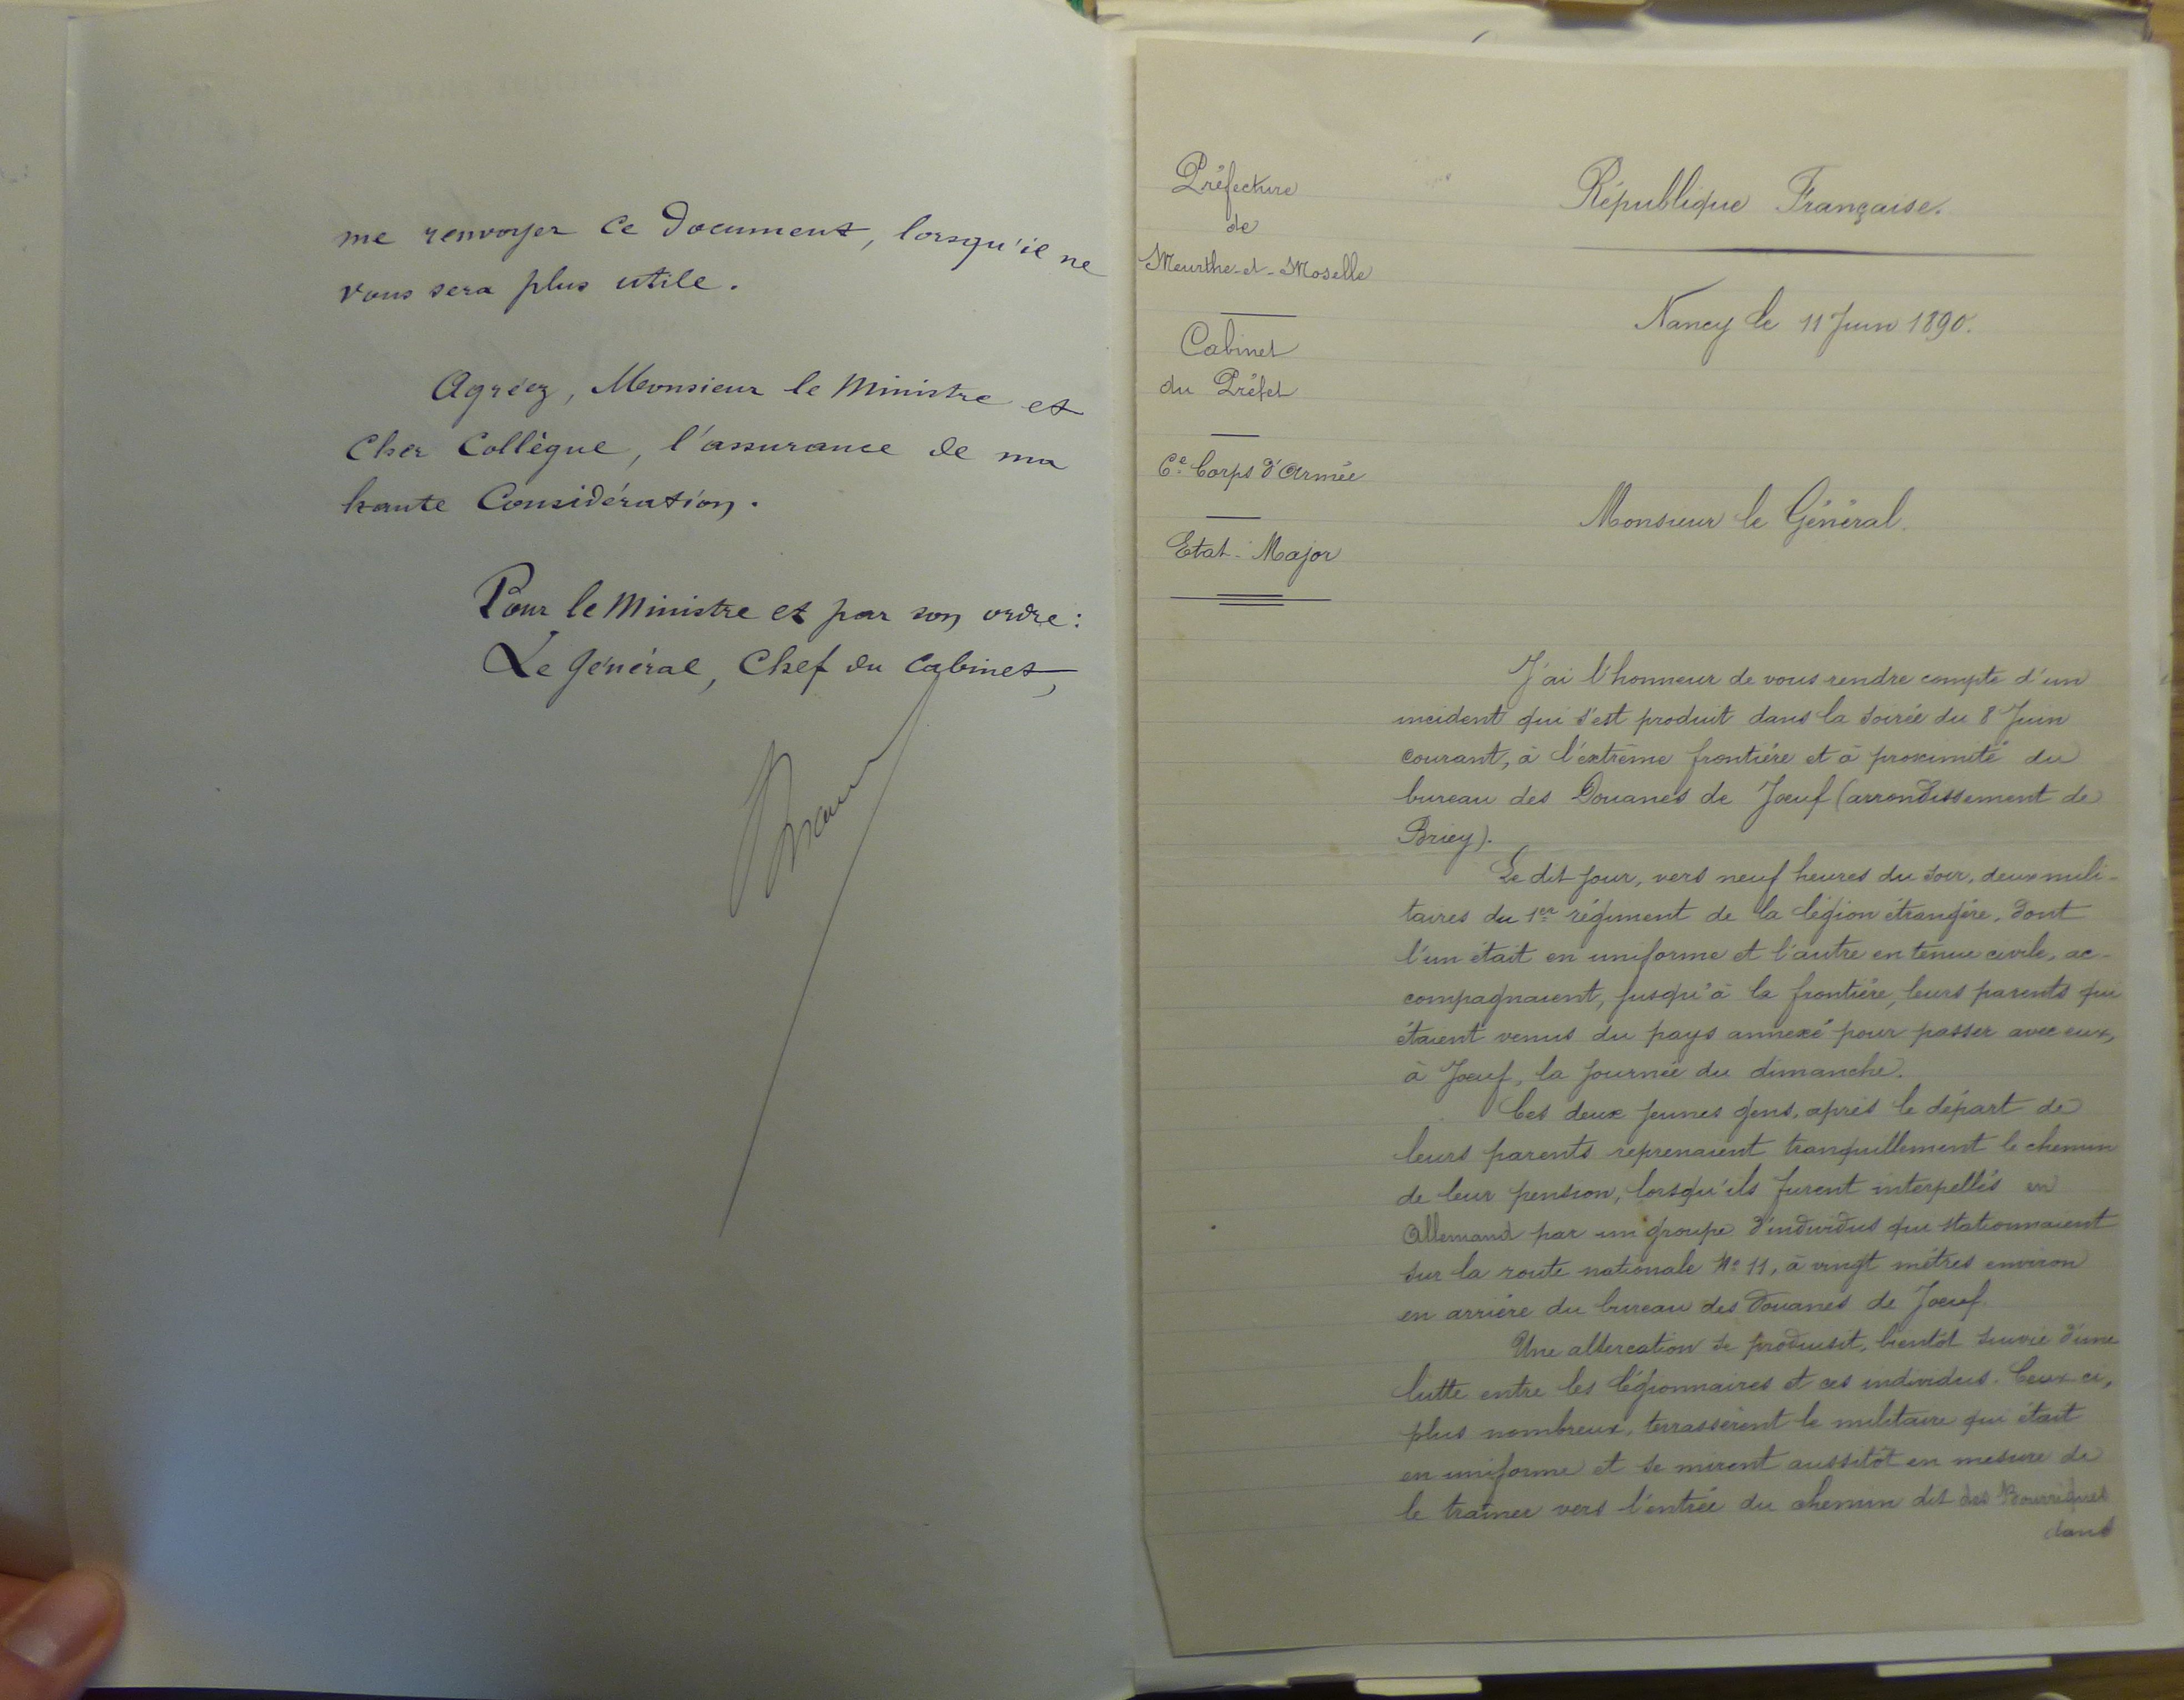 me renvoyer ce document, lorsqu'il ne
vous sera plus utile.
Agréez, Monsieur le Ministre et
Cher Collègue, l'assurance de ma
haute Considération.
Pour le Ministre et par son ordre:
Le Général, Chef du Cabinet,
Préfecture
de
Meurthe-et-Moselle
Cabinet
du Préfet
6e Corps d'Armée
Etat-Major
République Française.
Nancy le 11 Juin 1890.
Monsieur le Général.
J'ai l'honneur de vous rendre compte d'un
incident qui s'est produit dans la soirée du 8 Juin
courant, à l'extrême frontière et à proximité du
bureau des Douanes de Jœuf (arrondissement de
Briey).
Le dit jour, vers neuf heures du soir, deux mili-
taires du 1er régiment de la légion étrangère, dont
l'un était en uniforme et l'autre en tenue civile, ac-
compagnaient, jusqu'à la frontière, leurs parents qui
étaient venus du pays annexé pour passer avec eux,
à Jœuf, la journée du dimanche.
Ces deux jeunes gens, après le départ de
leurs parents reprenaient tranquillement le chemin
de leur pension, lorsqu'ils furent interpellés en
Allemand par un groupe d'individus qui stationnaient
sur la route nationale No 11, à vingt mètres environ
en arrière du bureau des Douanes de Jœuf.
Une altercation se produisit, bientôt suivie d'une
lutte entre les légionnaires et ces individus. Ceux-ci,
plus nombreux, terrassèrent le militaire qui était
en uniforme et se mirent aussitôt en mesure de
le traîner vers l'entrée du chemin dit des Bourriques
dans